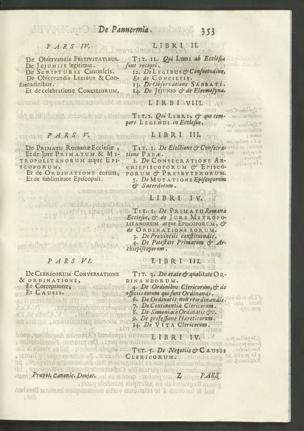 De Pannormia. 353
PARS IV.
De Observantia FESTIVITATIBUS.
De JEJUNIIS legitimis.
De SCRIPTURIS Canonicis.
De Observantia LEGIBUS & Con-
suetudinibus.
Et de celebratione CONCILIORUM.
LIBRI II.
TIT. 11. Qui LIBRI ab Ecclesia
sunt recepti.
12. De LEGIBUS & Consuetudine,
Et de CONCILIIS.
13. De Observatione SABBATI.
14. De JEJUNIO & de Eleemosyna.
LIBRI VIII.
TIT. 2. Qui LIBRI, & quo tem-
pore LEGENDI in Ecclesia.
PARS V.
De PRIMATU Romanæ Ecclesiæ,
Et de Jure PRIMATUM & ME-
TROPOLITANORUM atque EPIS-
COPORUM.
Et de ORDINATIONE eorum,
Et de sublimitate Episcopali.
LIBRI III.
TIT. 1. De Electione & Consecra-
tione PAPÆ.
2. De CONSECRATIONE AR-
CHIEPISCOPORUM & EPISCO-
PORUM & PRESBYTERORUM.
5. De MUTATIONE Episcoporum
& Sacerdotum.
LIBRI IV.
TIT. 1. De PRIMATU Romanæ
Ecclesiæ, & de JURE METROPO-
LITANORUM atque EPISCOPORUM, &
de ORDINATIONE EORUM.
3. De Provinciis constituendis.
4. De Potestate Primatum & Ar-
chiepiscoporum.
PARS VI.
De CLERICORUM CONVERSATIONE
& ORDINATIONE,
Et Correptione,
Et CAUSIS.
LIBRI III.
TIT. 3. De ætate & qualitate OR-
DINANDORUM.
4. De Ordinibus Clericorum, & de
6. De Ordinatis
7. De Continentia Clericorum.
8. De Simoniace Ordinatis &c.
9. De professione Hæreticorum.
14. De VITA Clericorum.
LIBRI IV.
TIT. 5. De Negotiis & CAUSIS
CLERICORUM.
Prænot. Canonic. Doujat. Z PARS